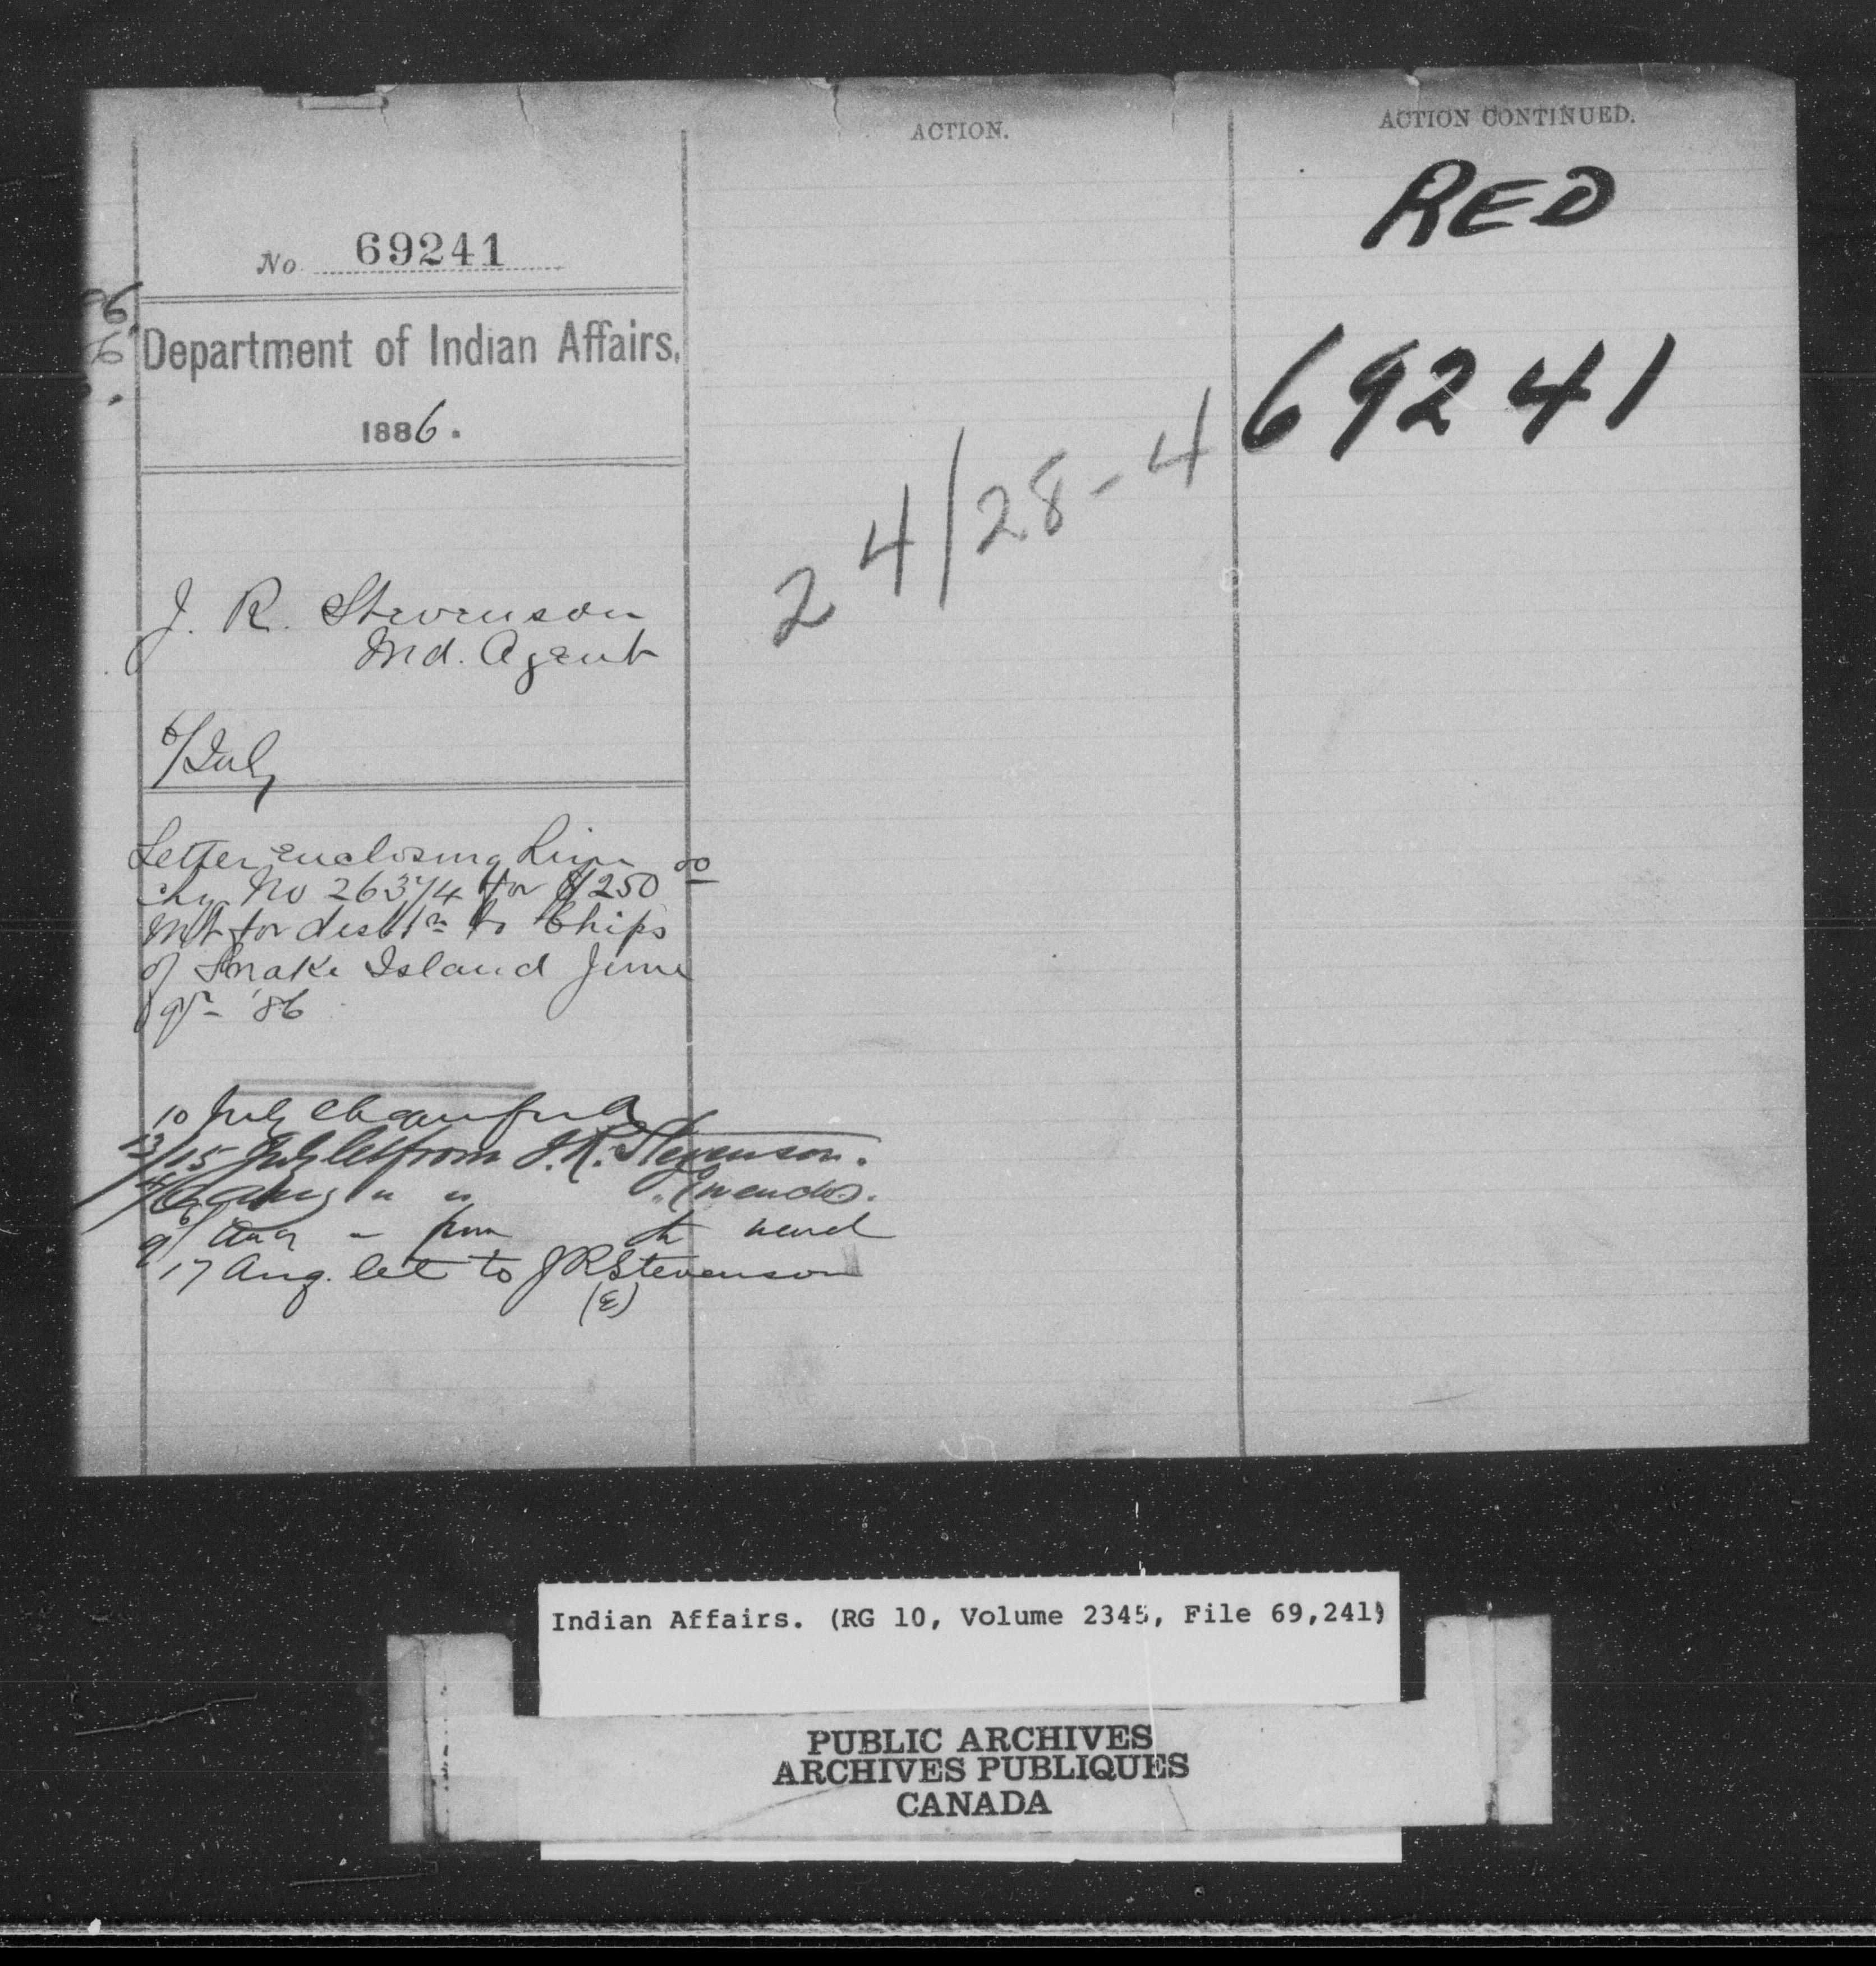 ACTION.
ACTION CONTINUED.
RED
69241
24/28-4
No 69241
Department of Indian Affairs.
1886.
J. R. Stevenson
Ind. Agent
6/July
Letter enclosing him
No 26374 for $250 00
for to Chips
of Snake Island June
'86
10 July
13/15 July let from J. R. Stevenson.
Aug " "
9/ Aug from
17 Aug. let to J R Stevenson
(E)
Indian Affairs. (RG 10, Volume 2345, File 69,241)
PUBLIC ARCHIVES
ARCHIVES PUBLIQUES
CANADA